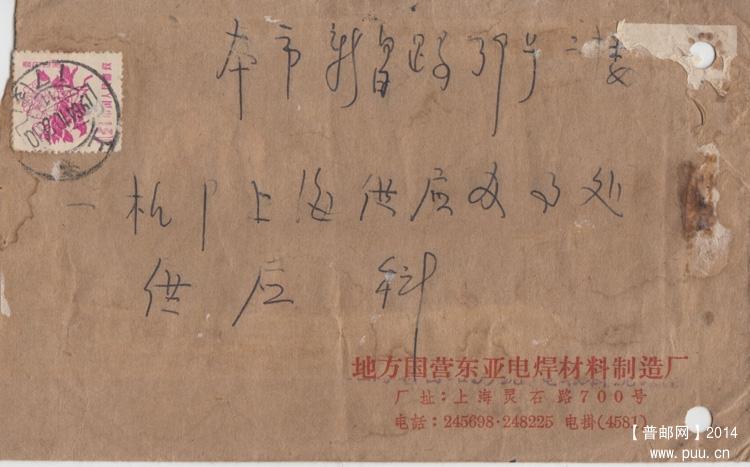 本市新昌路39号二楼
一机部上海供应办事处
供应科
地方国营东亚电焊材料制造厂
厂址:上海灵石路700号
电话:245698·248225 电掛(4581)
【普邮网】2014
www.puu.cn